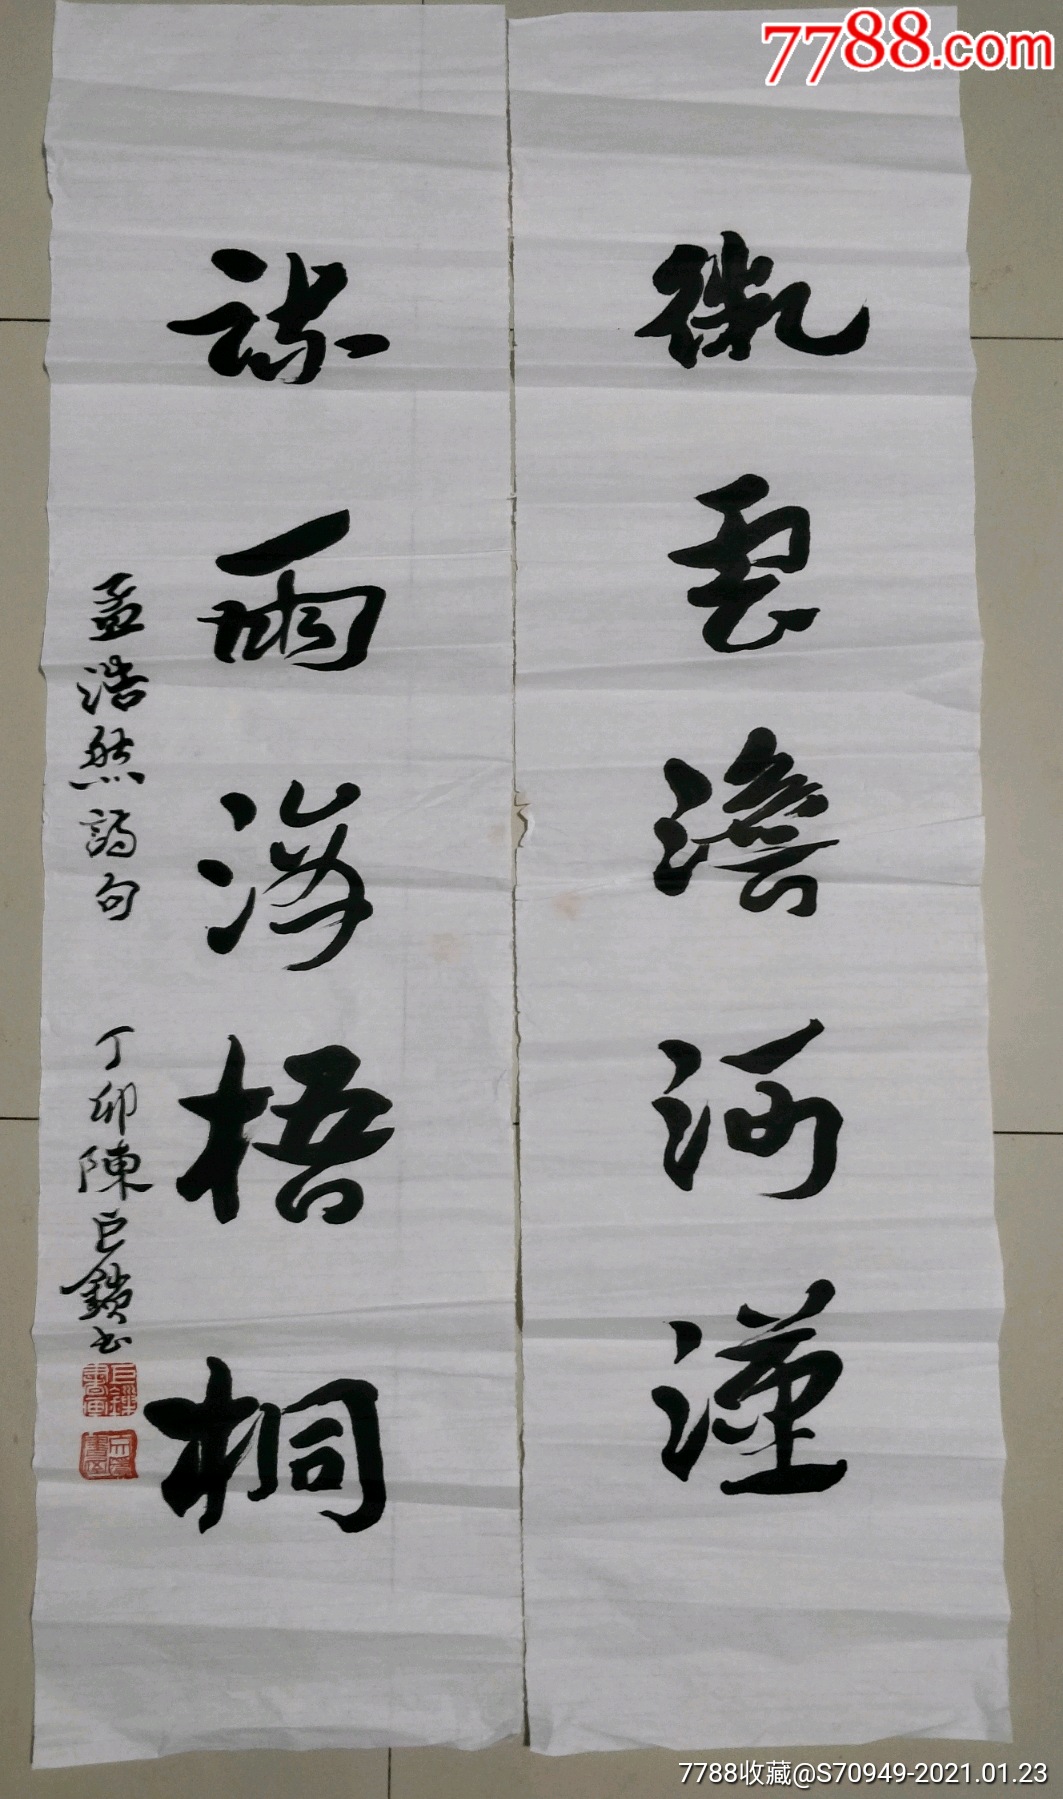 7788.com
微雲澹河漢
疎雨滴梧桐
孟浩然詩句
丁卯陳巨鎖书
7788收藏@S70949-2021.01.23